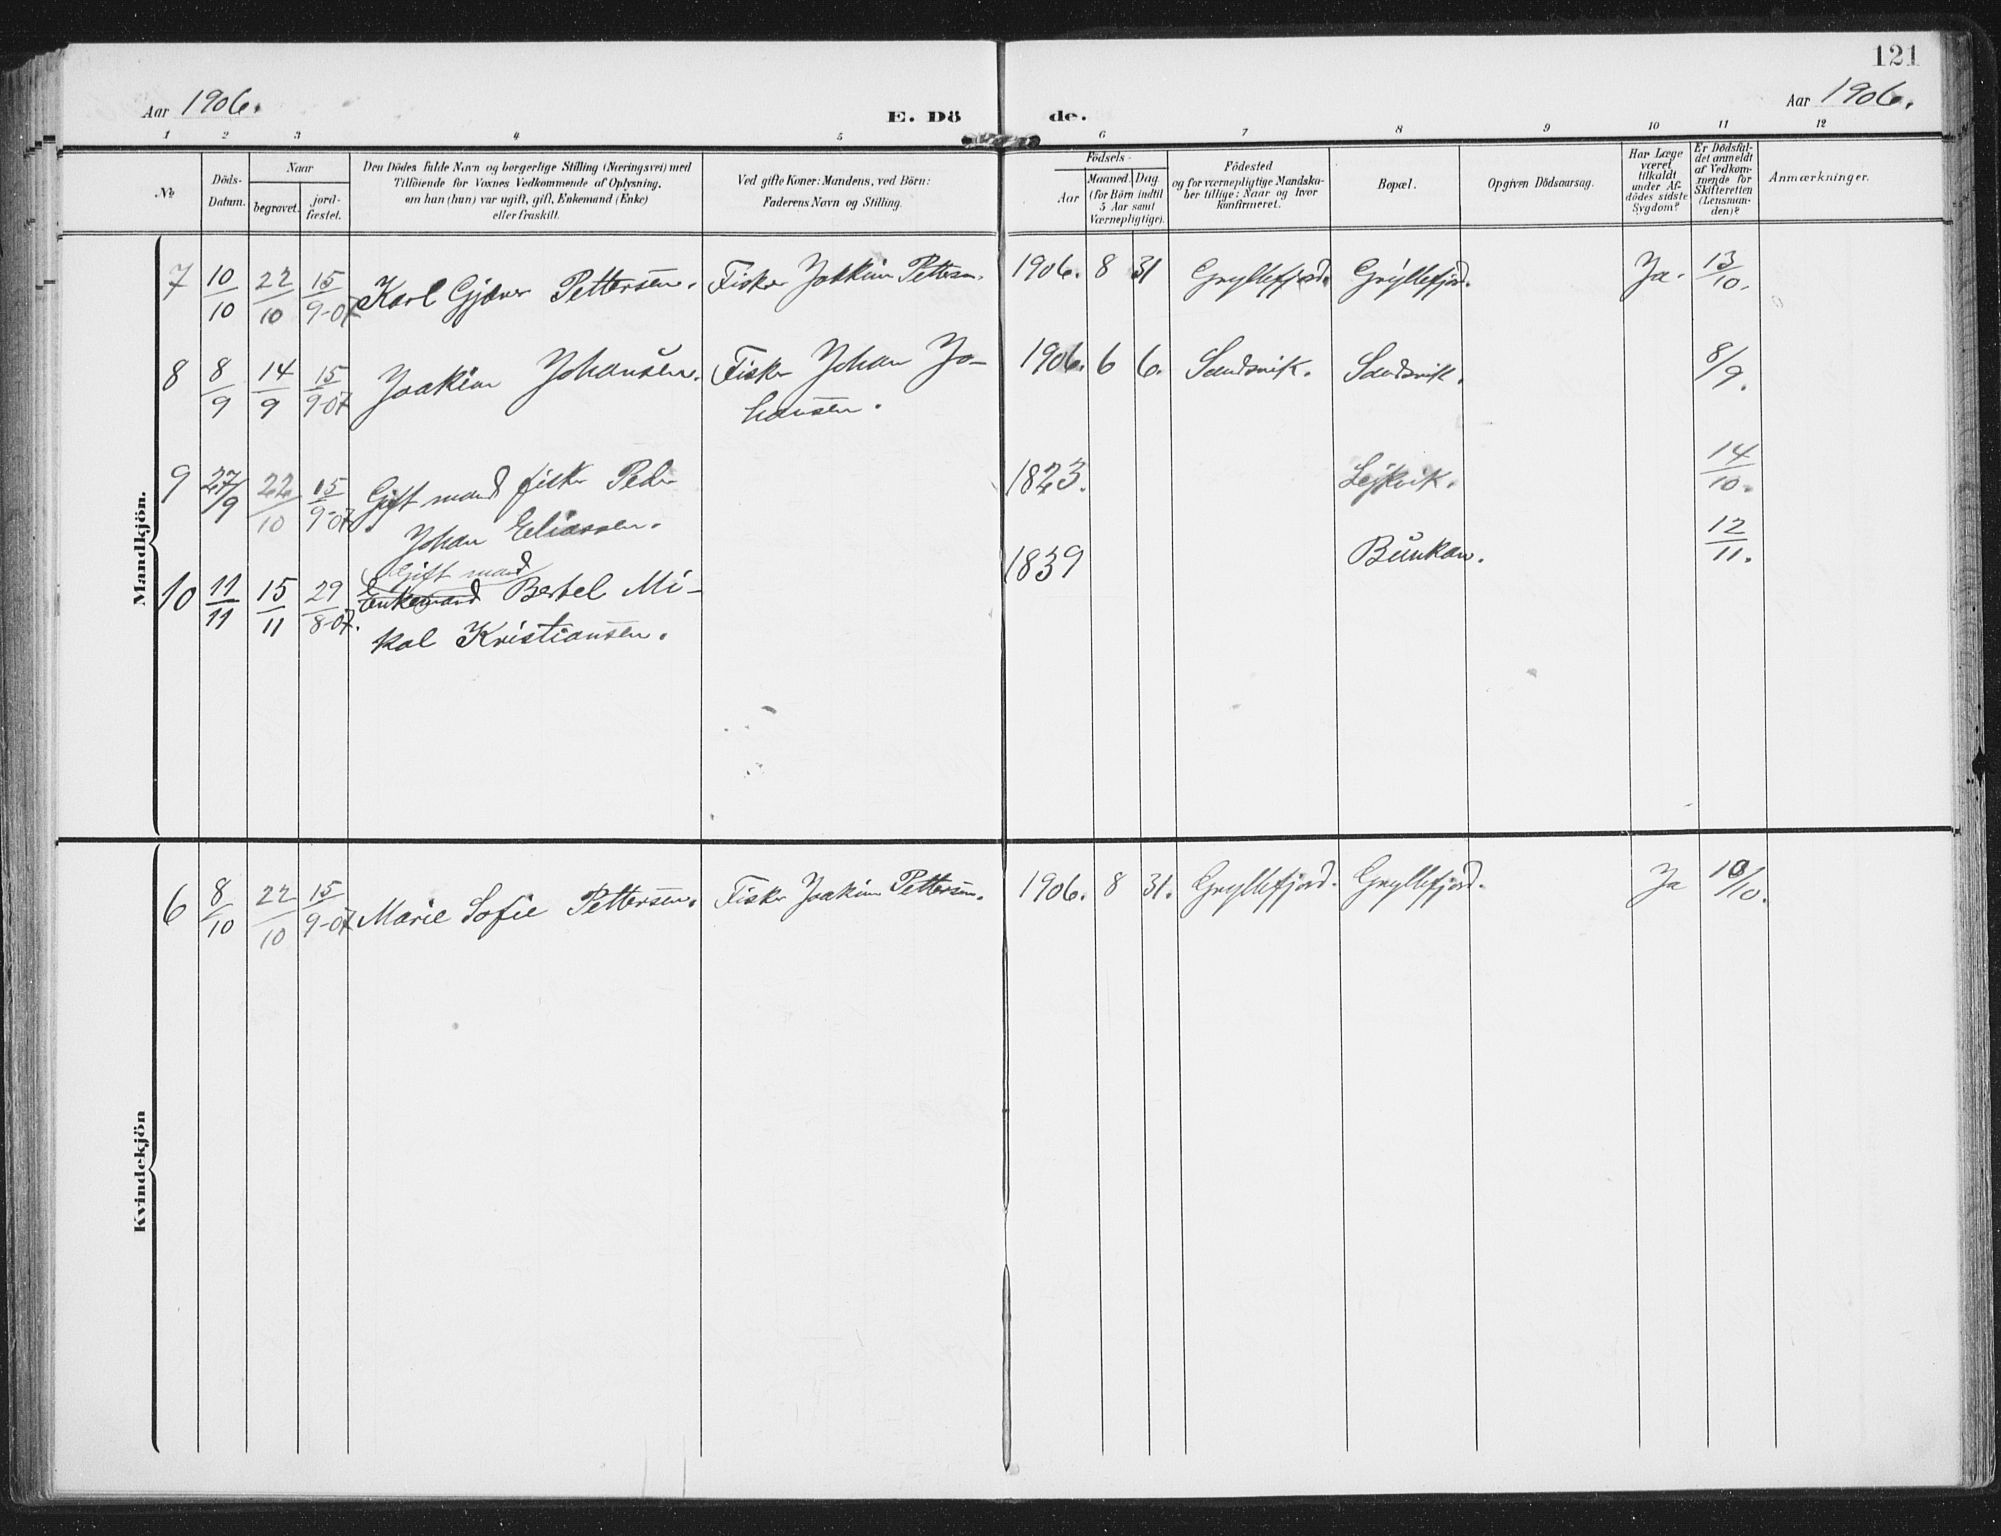 121
Aar 1906.
E. Dö de.
Aar 1906.
1 2 3 4 5 6 7 8 9 10 11 12
№
Döds-
Datum.
Naar
begravet.
jord-
fæstet.
Den Dödes fulde Navn og borgerlige Stilling (Næringsvei) med
Tilföiende for Voxnes Vedkommende af Oplysning,
om han (hun) var ugift, gift, Enkemand (Enke)
eller fraskilt.
Ved gifte Koner: Mandens, ved Börn:
Faderens Navn og Stilling.
Födsels-
Aar
Maaned. Dag
(for Börn indtil
5 Aar samt
Værnepligtige).
Födested
og for værnepligtige Mandska-
ber tillige: Naar og hvor
konfirmeret.
Bopæl.
Opgiven Dödsaarsag.
Har Læge
været
tilkaldt
under Af-
dödes sidste
Sygdom?
Er Dödsfal-
det anmeldt
af Vedkom-
mende for
Skifteretten
(Lensman-
den)?
Anmærkninger.
Mandkjön.
7 10/10 22/10 15/9-07 Karl Gjæver Pettersen. Fisker Joakim Pettersen. 1906. 8 31 Gryllefjord. Gryllefjord. Ja. 13/10.
8 8/9 14/9 15/9-07 Joakim Johansen. Fisker Johan Jo-
hansen. 1906. 6 6. Sandsvik. Sandsvik. 8/9.
9 27/9 22/10 15/9-07 Gift mand fisker Peder
Johan Eliassen. 1823. 14/10.
10 11/11 15/11 29/8-07. Gift mand
Enkemand Bertel Mi-
kal Kristiansen. 1839 Bunkan. 12/11.
Kvindekjön
6 8/10 22/10 15/9-07 Marie Sofie Pettersen. Fisker Joakim Pettersen. 1906. 8 31. Gryllefjord. Gryllefjord. Ja 10/10.